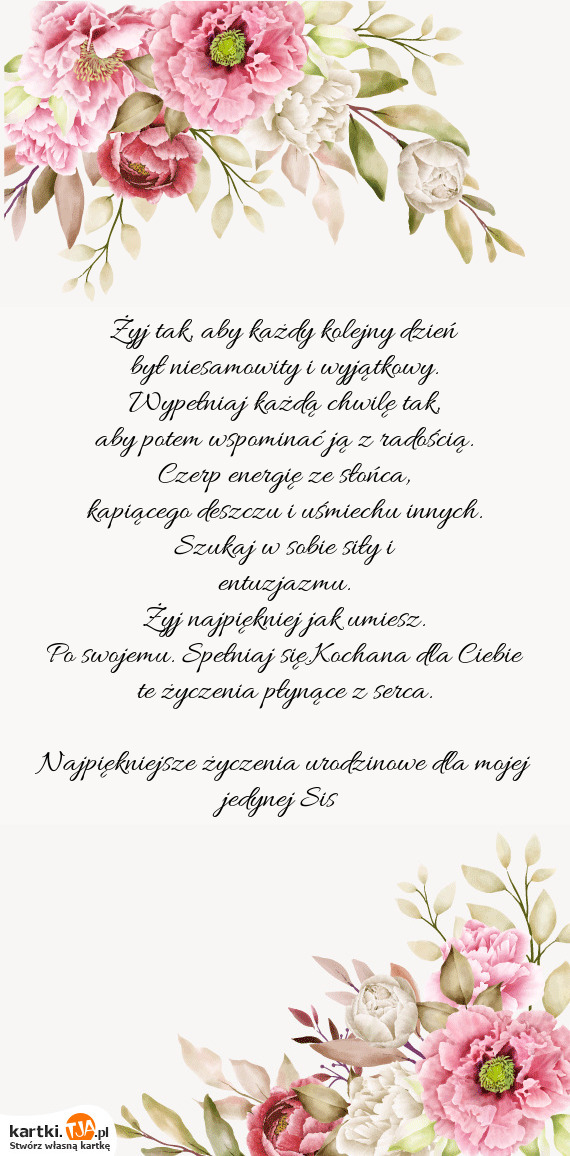 Żyj tak, aby każdy kolejny dzień
był niesamowity i wyjątkowy.
Wypełniaj każdą chwilę tak,
aby potem wspominać ją z radością.
Czerp energię ze słońca,
kapiącego deszczu i uśmiechu innych.
Szukaj w sobie siły i
entuzjazmu.
Żyj najpiękniej jak umiesz.
Po swojemu. Spełniaj się,Kochana dla Ciebie
te życzenia płynące z serca.
Najpiękniejsze życzenia urodzinowe dla mojej
jedynej Sis
kartki.TJA.pl
Stwórz własną kartkę